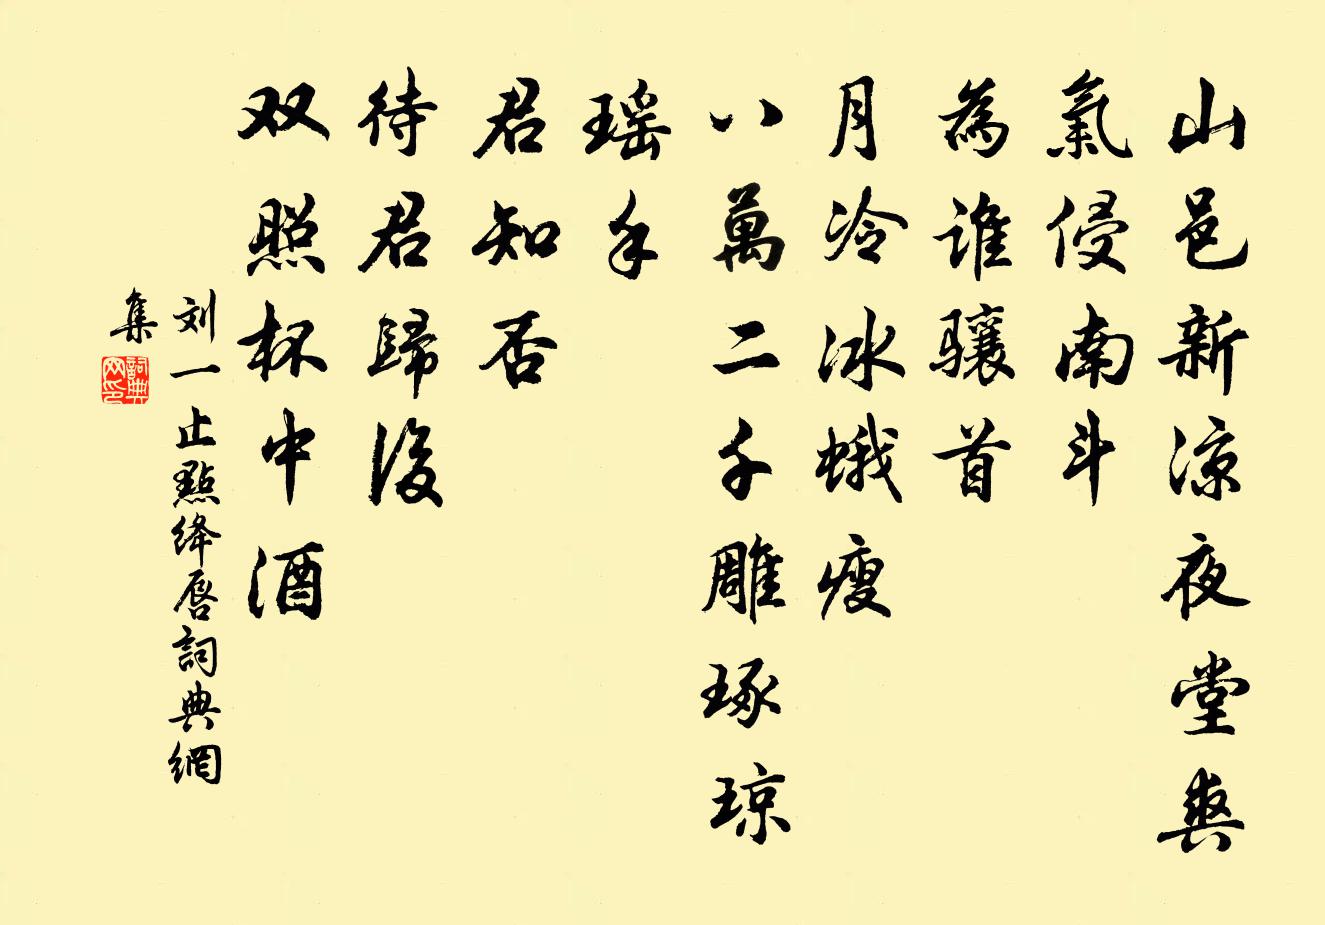 山邑新凉夜堂爽
氣侵南斗
為誰驤首
月冷冰蛾瘦
八萬二千雕琢琼
瑶手
君知否
待君歸後
双照杯中酒
刘一止點绛唇詞典網
集
詞典网印